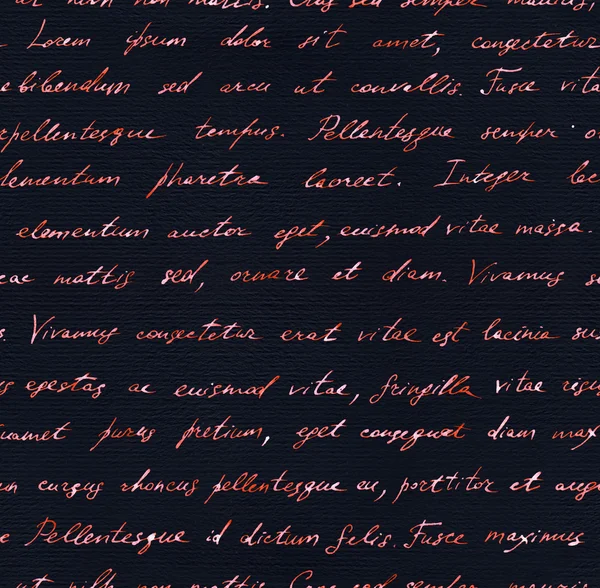 ut nibh non mattis. Cras sed semper mauris,
Lorem ipsum dolor sit amet, consectetur
bibendum sed arcu ut convallis. Fusce vita
rpellentesque tempus. Pellentesque semper o
lementum pharetra laoreet. Integer lec
elementum auctor eget, euismod vitae massa.
eac mattis sed, ornare et diam. Vivamus s
s. Vivamus consectetur erat vitae est lacinia sus
us egestas ac euismod vitae, fringilla vitae risu
uamet purus pretium, eget consequat diam max
un cursus rhoncus pellentesque eu, porttitor et aug
e Pellentesque id dictum felis. Fusce maximus
ut nibh non mattis. Cras sed semper mauris